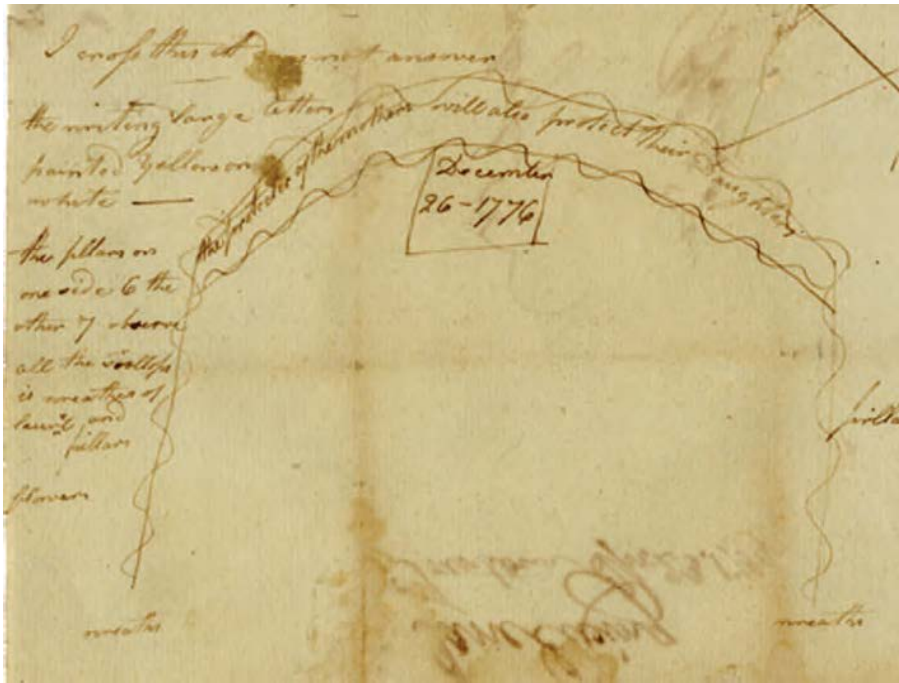 I cross this it does not answer
the writing large letters
painted yellow on
white —
the pillars on
one side 6 the
other 7 observe
all the scollops
is wreathes of
laurel and
pillars
flowers
the protector of the mothers will also protect their Daughters
December
26-1776
wreaths
wreaths